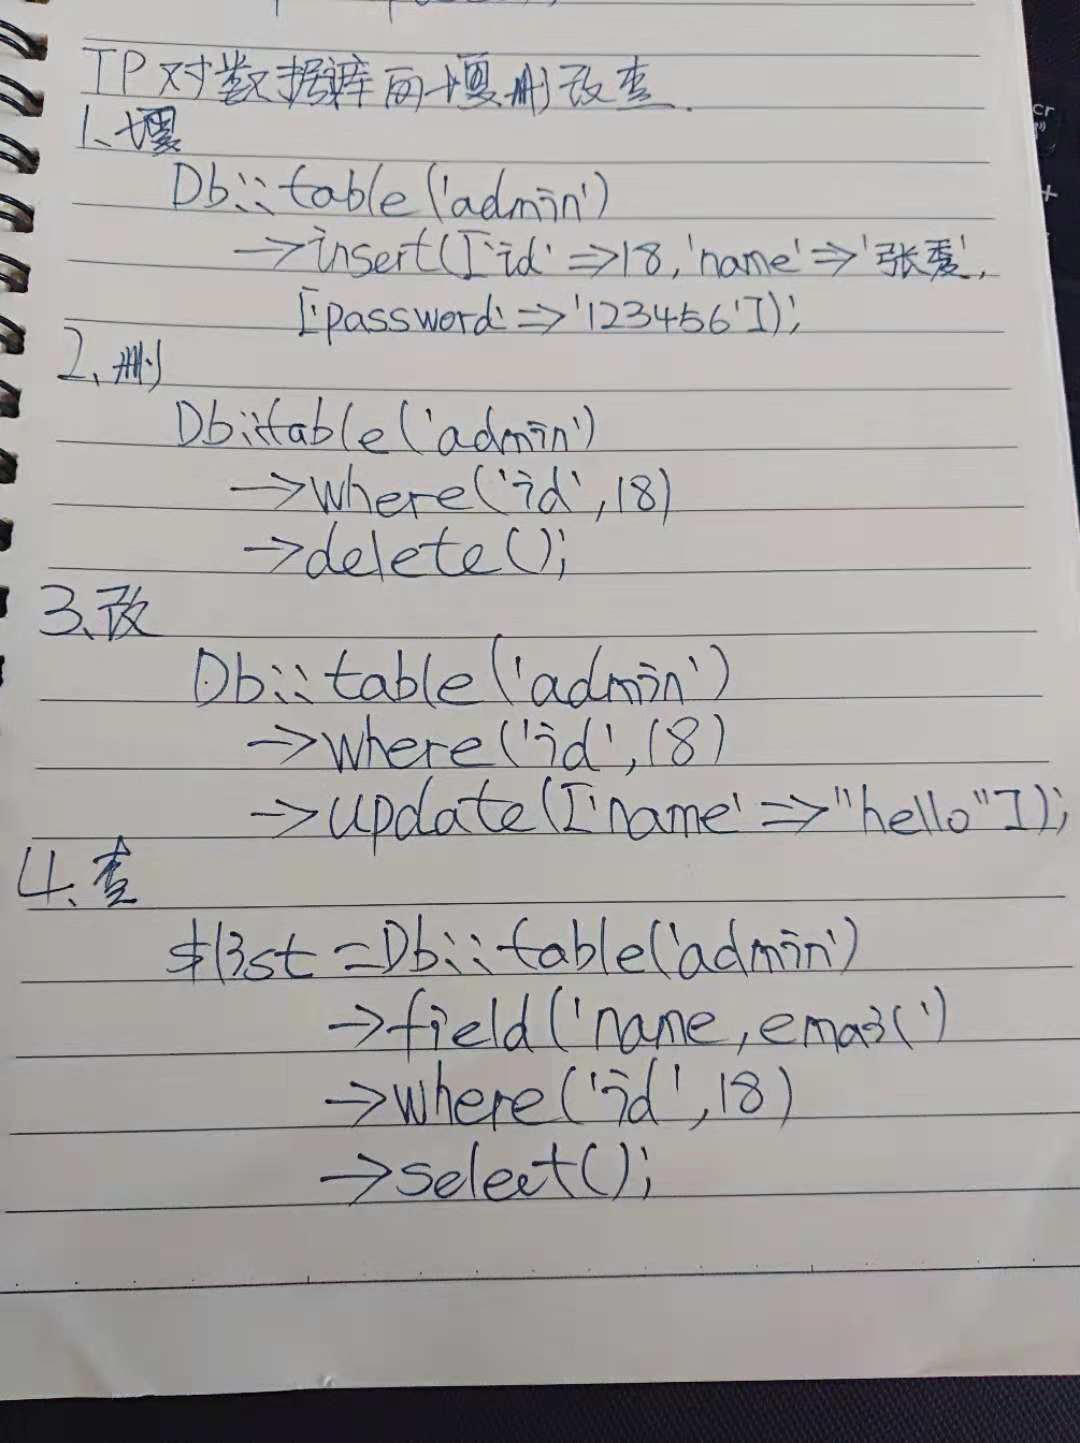 TP对数据库的增删改查.
1、增
Db::table('admin')
→insert(['id'=>18,'name'=>'张爱',
['password'=>'123456']);
2、删
Db::table('admin')
→where('id',18)
→delete();
3、改
Db::table('admin')
→where('id',18)
→update(['name'=>"hello"]);
4、查
$list=Db::table('admin')
→field('name,email')
→where('id',18)
→select();